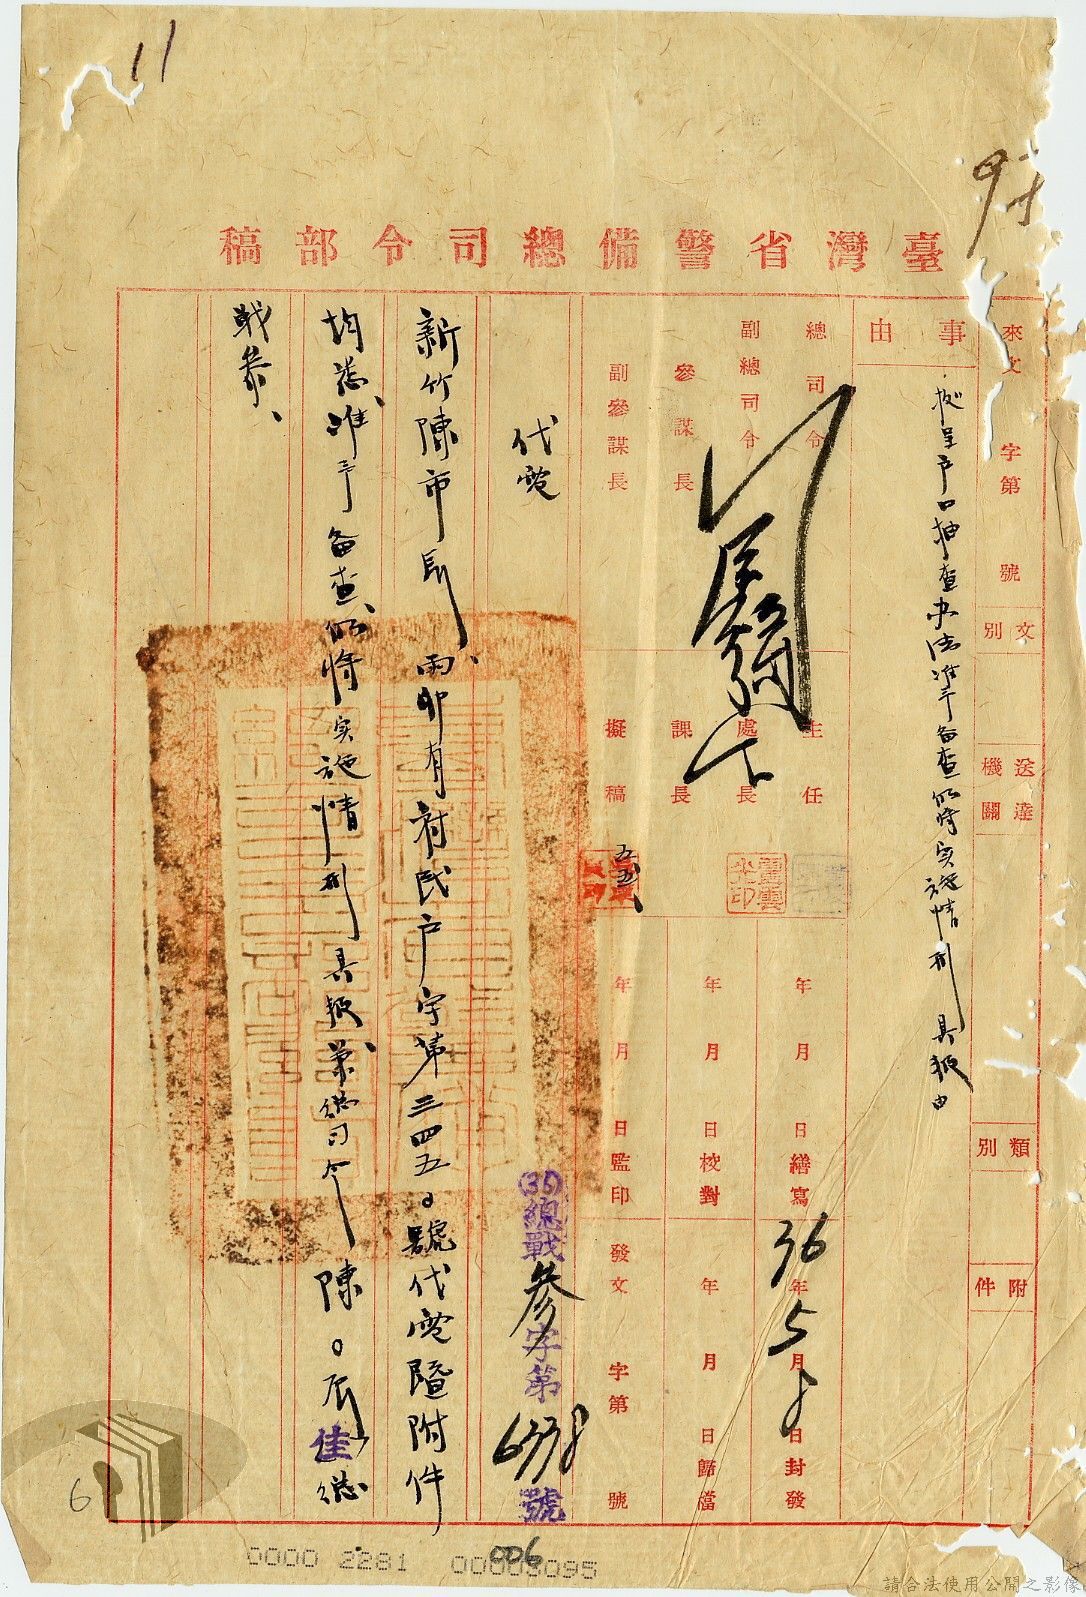 11
臺灣省警備總司令部稿
來文 字第 號
文別
送達機關
類別
附件
事由
據呈戶口抽查办法准予备查仍将实施情形具报由
總司令
副總司令
參謀長
副參謀長
主任
處長
課長
擬稿
年 月 日繕寫
年 月 日校對
年 月 日監印
36年5月8日封發
年 月 日歸檔
發文 字第 號
(36)總戰參字第6338號
代電
新竹陳市長、丙卯有府民戶字第三四五〇號代電暨附件
均悉、准予备查、仍将实施情形具报、兼總司令陳〇辰佳總
戰參、
6
0000 2281
006
00003095
請合法使用公開之影像